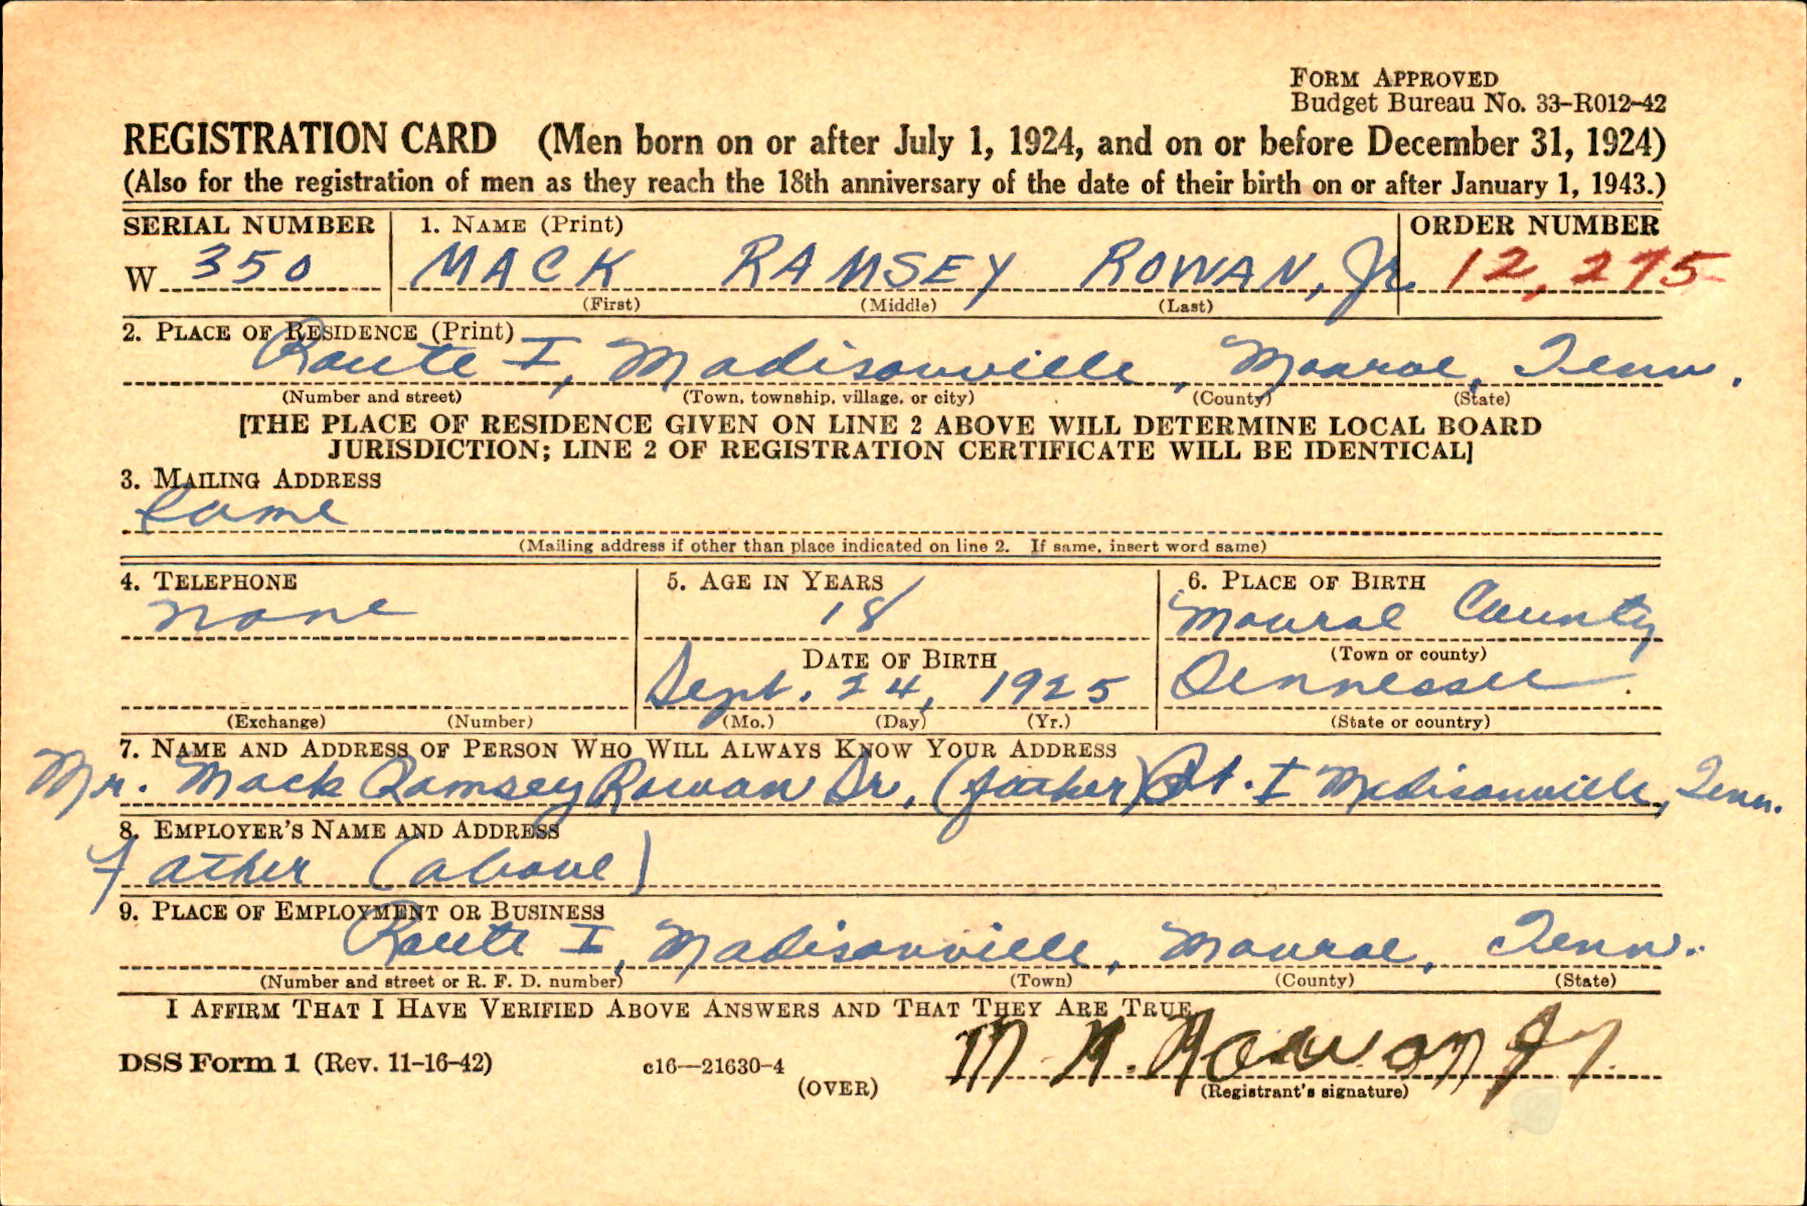 FORM APPROVED
Budget Bureau No. 33-R012-42
REGISTRATION CARD (Men born on or after July 1, 1924, and on or before December 31, 1924)
(Also for the registration of men as they reach the 18th anniversary of the date of their birth on or after January 1, 1943.)
SERIAL NUMBER 1. NAME (Print) ORDER NUMBER
W 350 MACK RAMSEY ROWAN, Jr. 12,275
(First) (Middle) (Last)
2. PLACE OF RESIDENCE (Print)
Route I, Madisonville, Monroe, Tenn.
(Number and street) (Town, township, village, or city) (County) (State)
[THE PLACE OF RESIDENCE GIVEN ON LINE 2 ABOVE WILL DETERMINE LOCAL BOARD
JURISDICTION; LINE 2 OF REGISTRATION CERTIFICATE WILL BE IDENTICAL]
3. MAILING ADDRESS
Same
(Mailing address if other than place indicated on line 2. If same, insert word same)
4. TELEPHONE 5. AGE IN YEARS 6. PLACE OF BIRTH
none 18 Monroe County
DATE OF BIRTH (Town or county)
Sept. 24, 1925 Tennessee
(Exchange) (Number) (Mo.) (Day) (Yr.) (State or country)
7. NAME AND ADDRESS OF PERSON WHO WILL ALWAYS KNOW YOUR ADDRESS
Mr. Mack Ramsey Rowan Sr, (father) Rt. I Madisonville, Tenn.
8. EMPLOYER'S NAME AND ADDRESS
Father (above)
9. PLACE OF EMPLOYMENT OR BUSINESS
Route I, Madisonville, Monroe, Tenn.
(Number and street or R. F. D. number) (Town) (County) (State)
I AFFIRM THAT I HAVE VERIFIED ABOVE ANSWERS AND THAT THEY ARE TRUE.
M. R. Rowan Jr.
DSS Form 1 (Rev. 11-16-42) c16—21630-4 (OVER) (Registrant's signature)